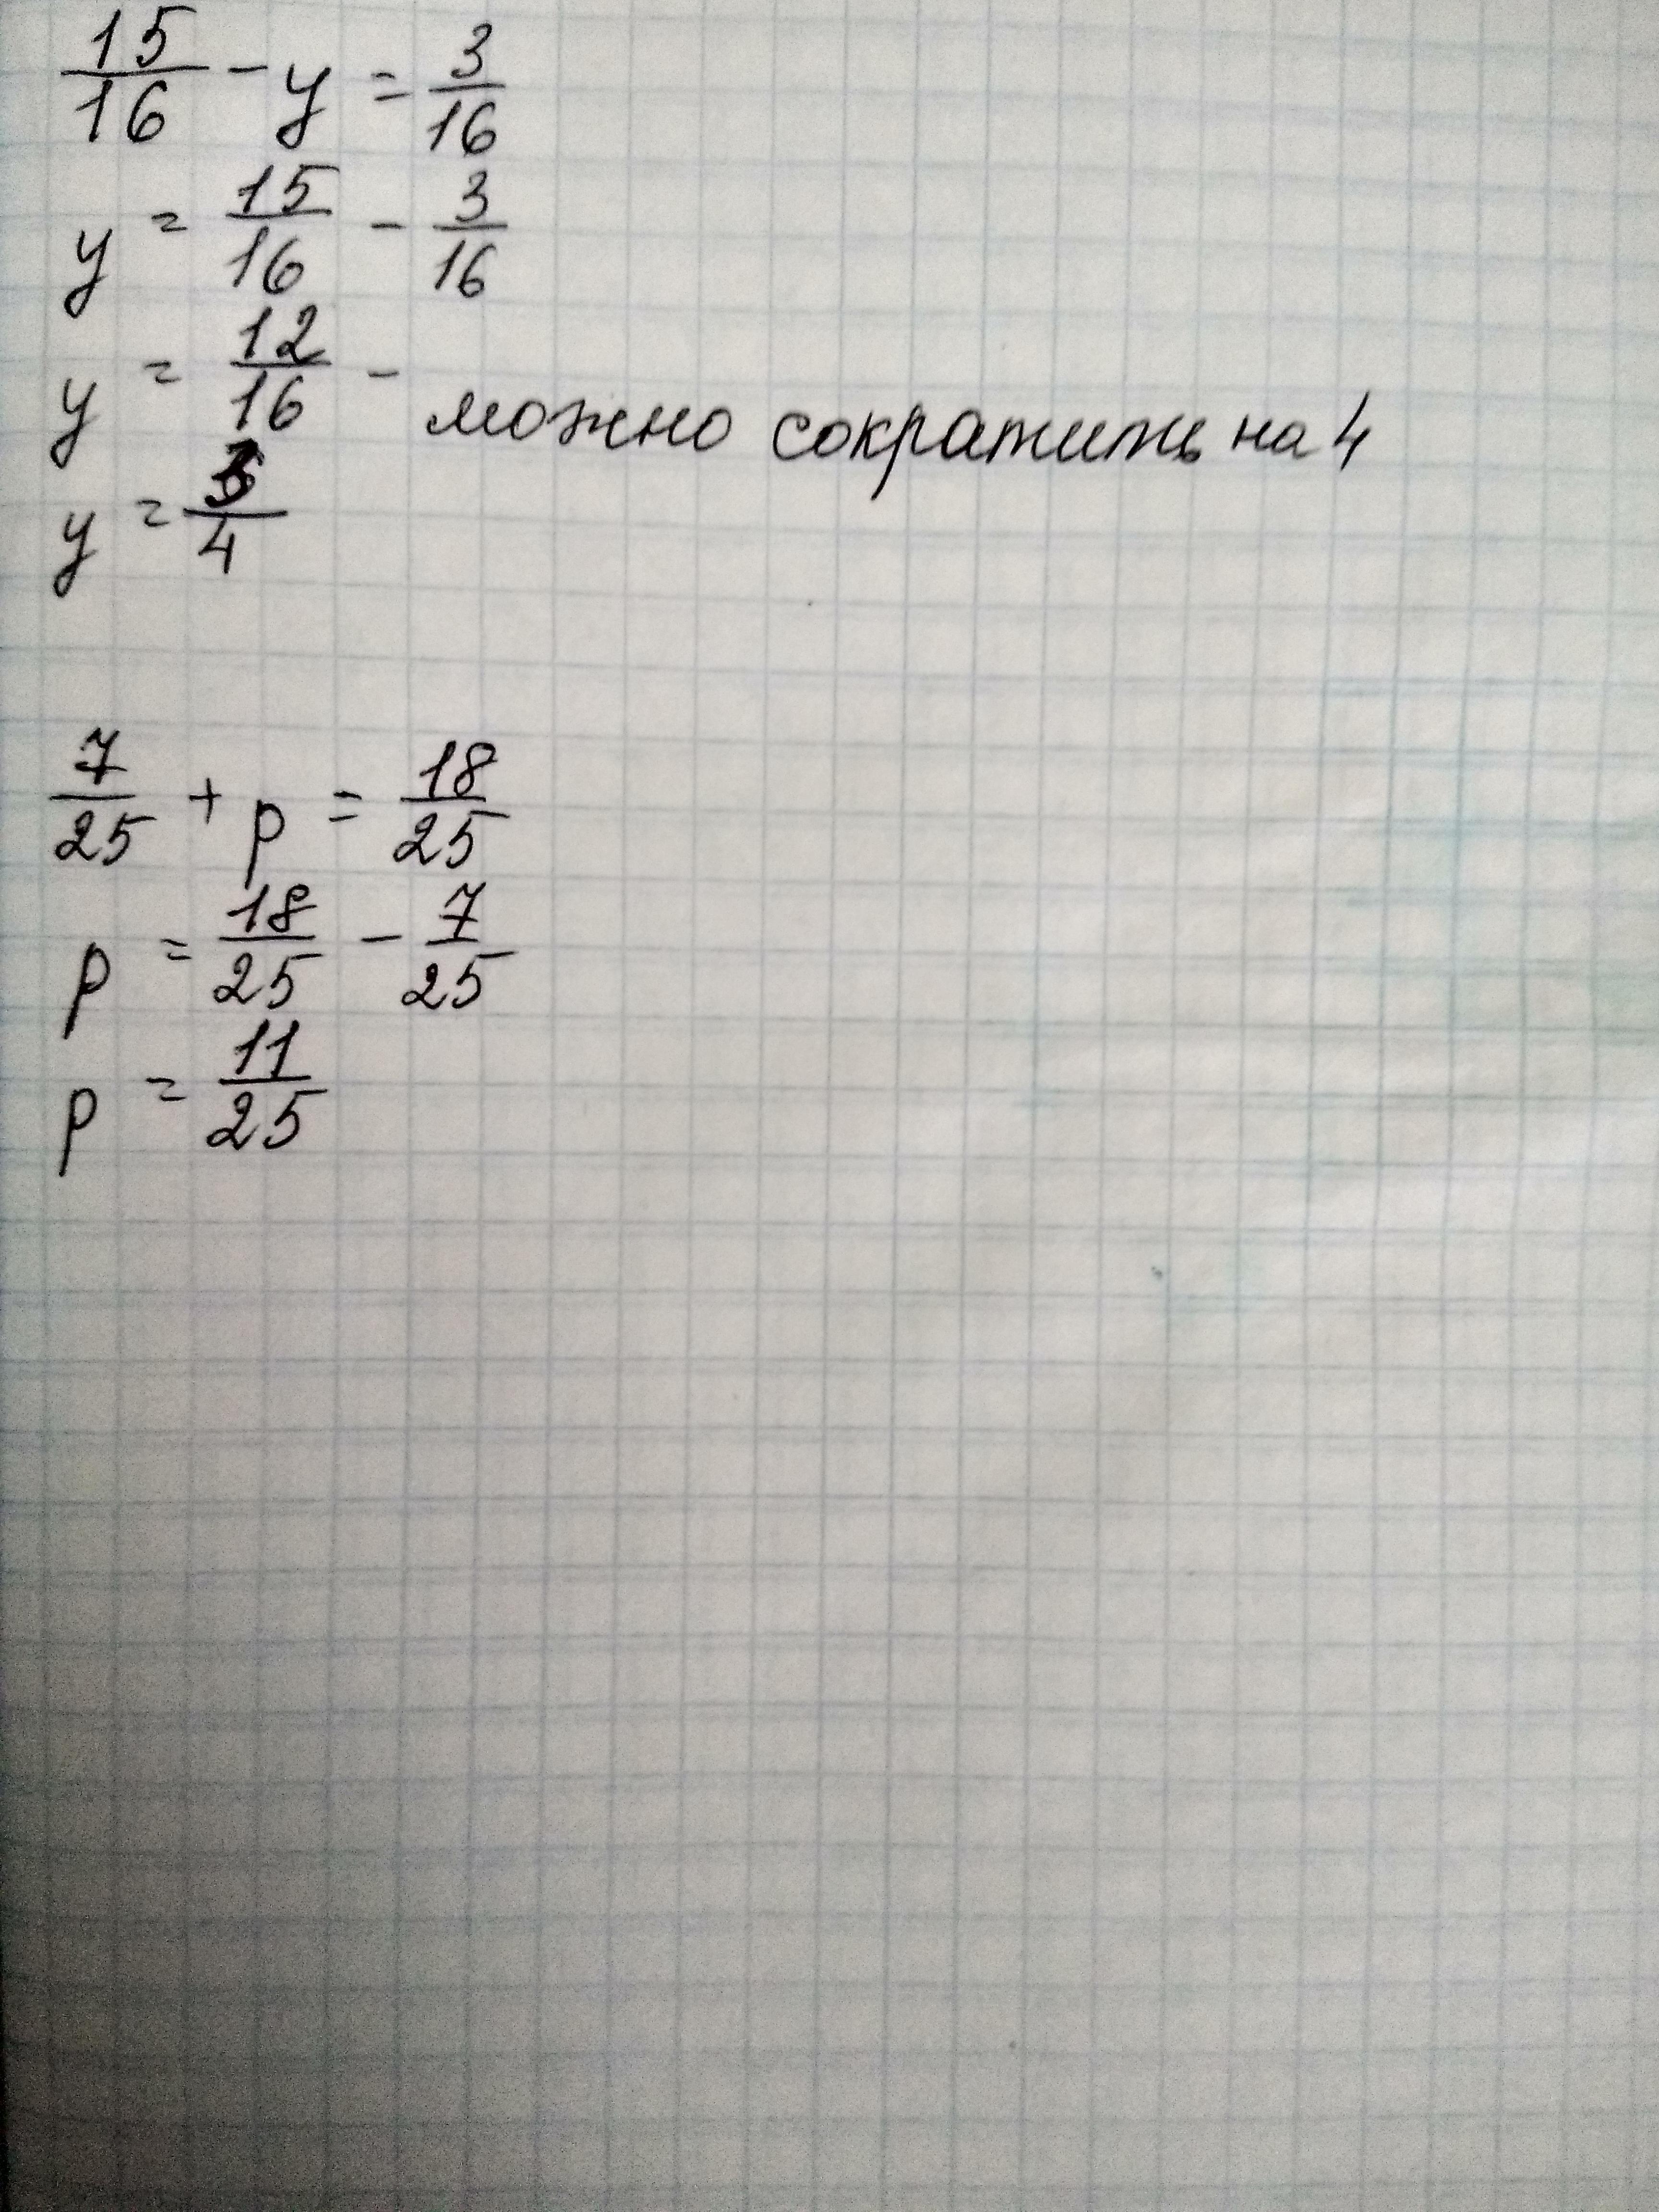 15/16 - y = 3/16
y = 15/16 - 3/16
y = 12/16 - можно сократить на 4
y = 3/4
7/25 + p = 18/25
p = 18/25 - 7/25
p = 11/25